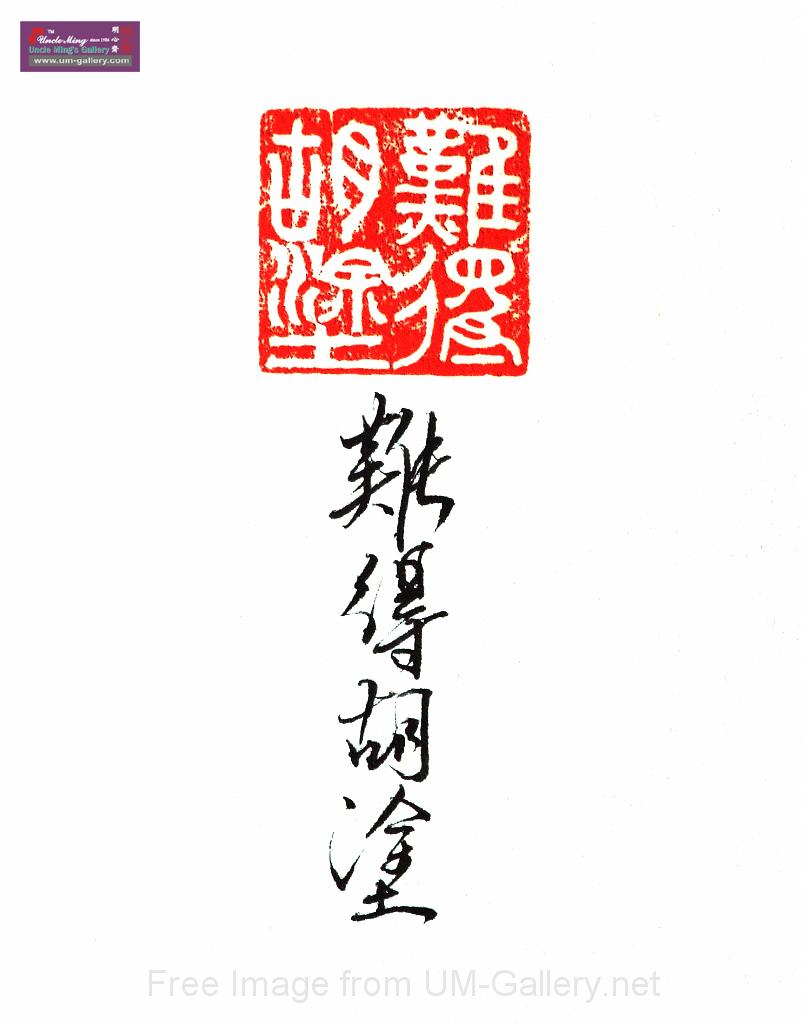 TM
Uncle Ming since 1986
明心齋
Uncle Ming's Gallery
www.um-gallery.com
難得
胡塗
難得胡塗
Free Image from UM-Gallery.net